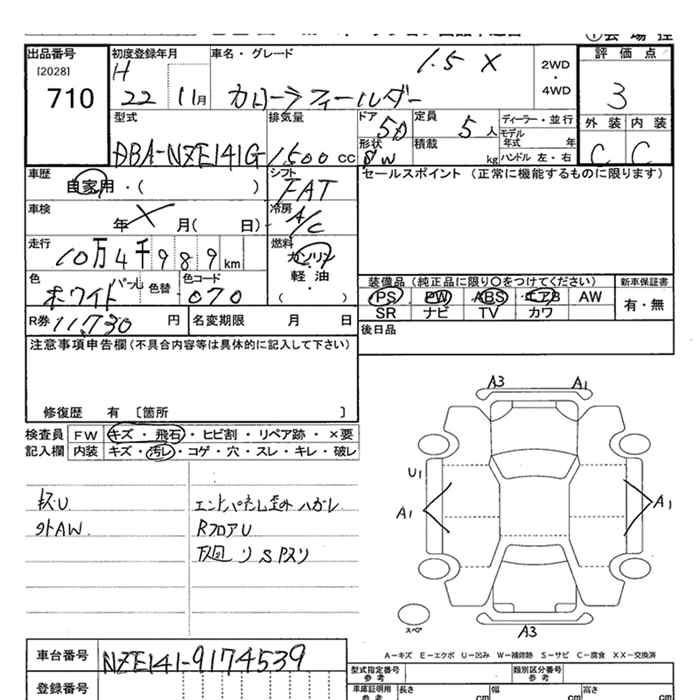 出品番号 初度登録年月 車名・グレード 評価点
[2028] H 1.5 X 2WD
710 22 11月 カローラフィールダー ・ 3
4WD
型式 排気量 ドア 5D 定員 5人 ディーラー・並行 外装 内装
モデル年式 年
DBA-NZE141G 1,500cc 形状 SW 積載 kg ハンドル 左・右 C C
車歴 シフト セールスポイント(正常に機能するものに限ります)
自家用・( ) FAT
車検 冷房
年 X 月( 日) A/C
走行 燃料
10万4千989km ガソリン
色 色替 色コード 軽油
ホワイトパール 070 ・
( )
装備品(純正品に限り〇をつけてください) 新車保証書
PS PW ABS エアB AW 有・無
SR ナビ TV カワ
R券 11,730円 名変期限 月 日 後日品
注意事項申告欄(不具合内容等は具体的に記入して下さい)
修復歴 有 〔箇所 〕
検査員 FW キズ・飛石・ヒビ割・リペア跡・×要
記入欄 内装 キズ・汚レ・コゲ・穴・スレ・キレ・破レ
A3 A1
U1
A1 A1
外AW エンドパネル歪み ハガレ
RフロアU
下廻リSPスリ
スペア
A3
A-キズ E-エクボ U-凹み W-補修跡 S-サビ C-腐食 XX-交換済
車台番号 NZE141-9174539
型式指定番号 参考 類別区分番号 参考
登録番号
車庫証明用 参考 長さ cm 幅 cm 高さ cm